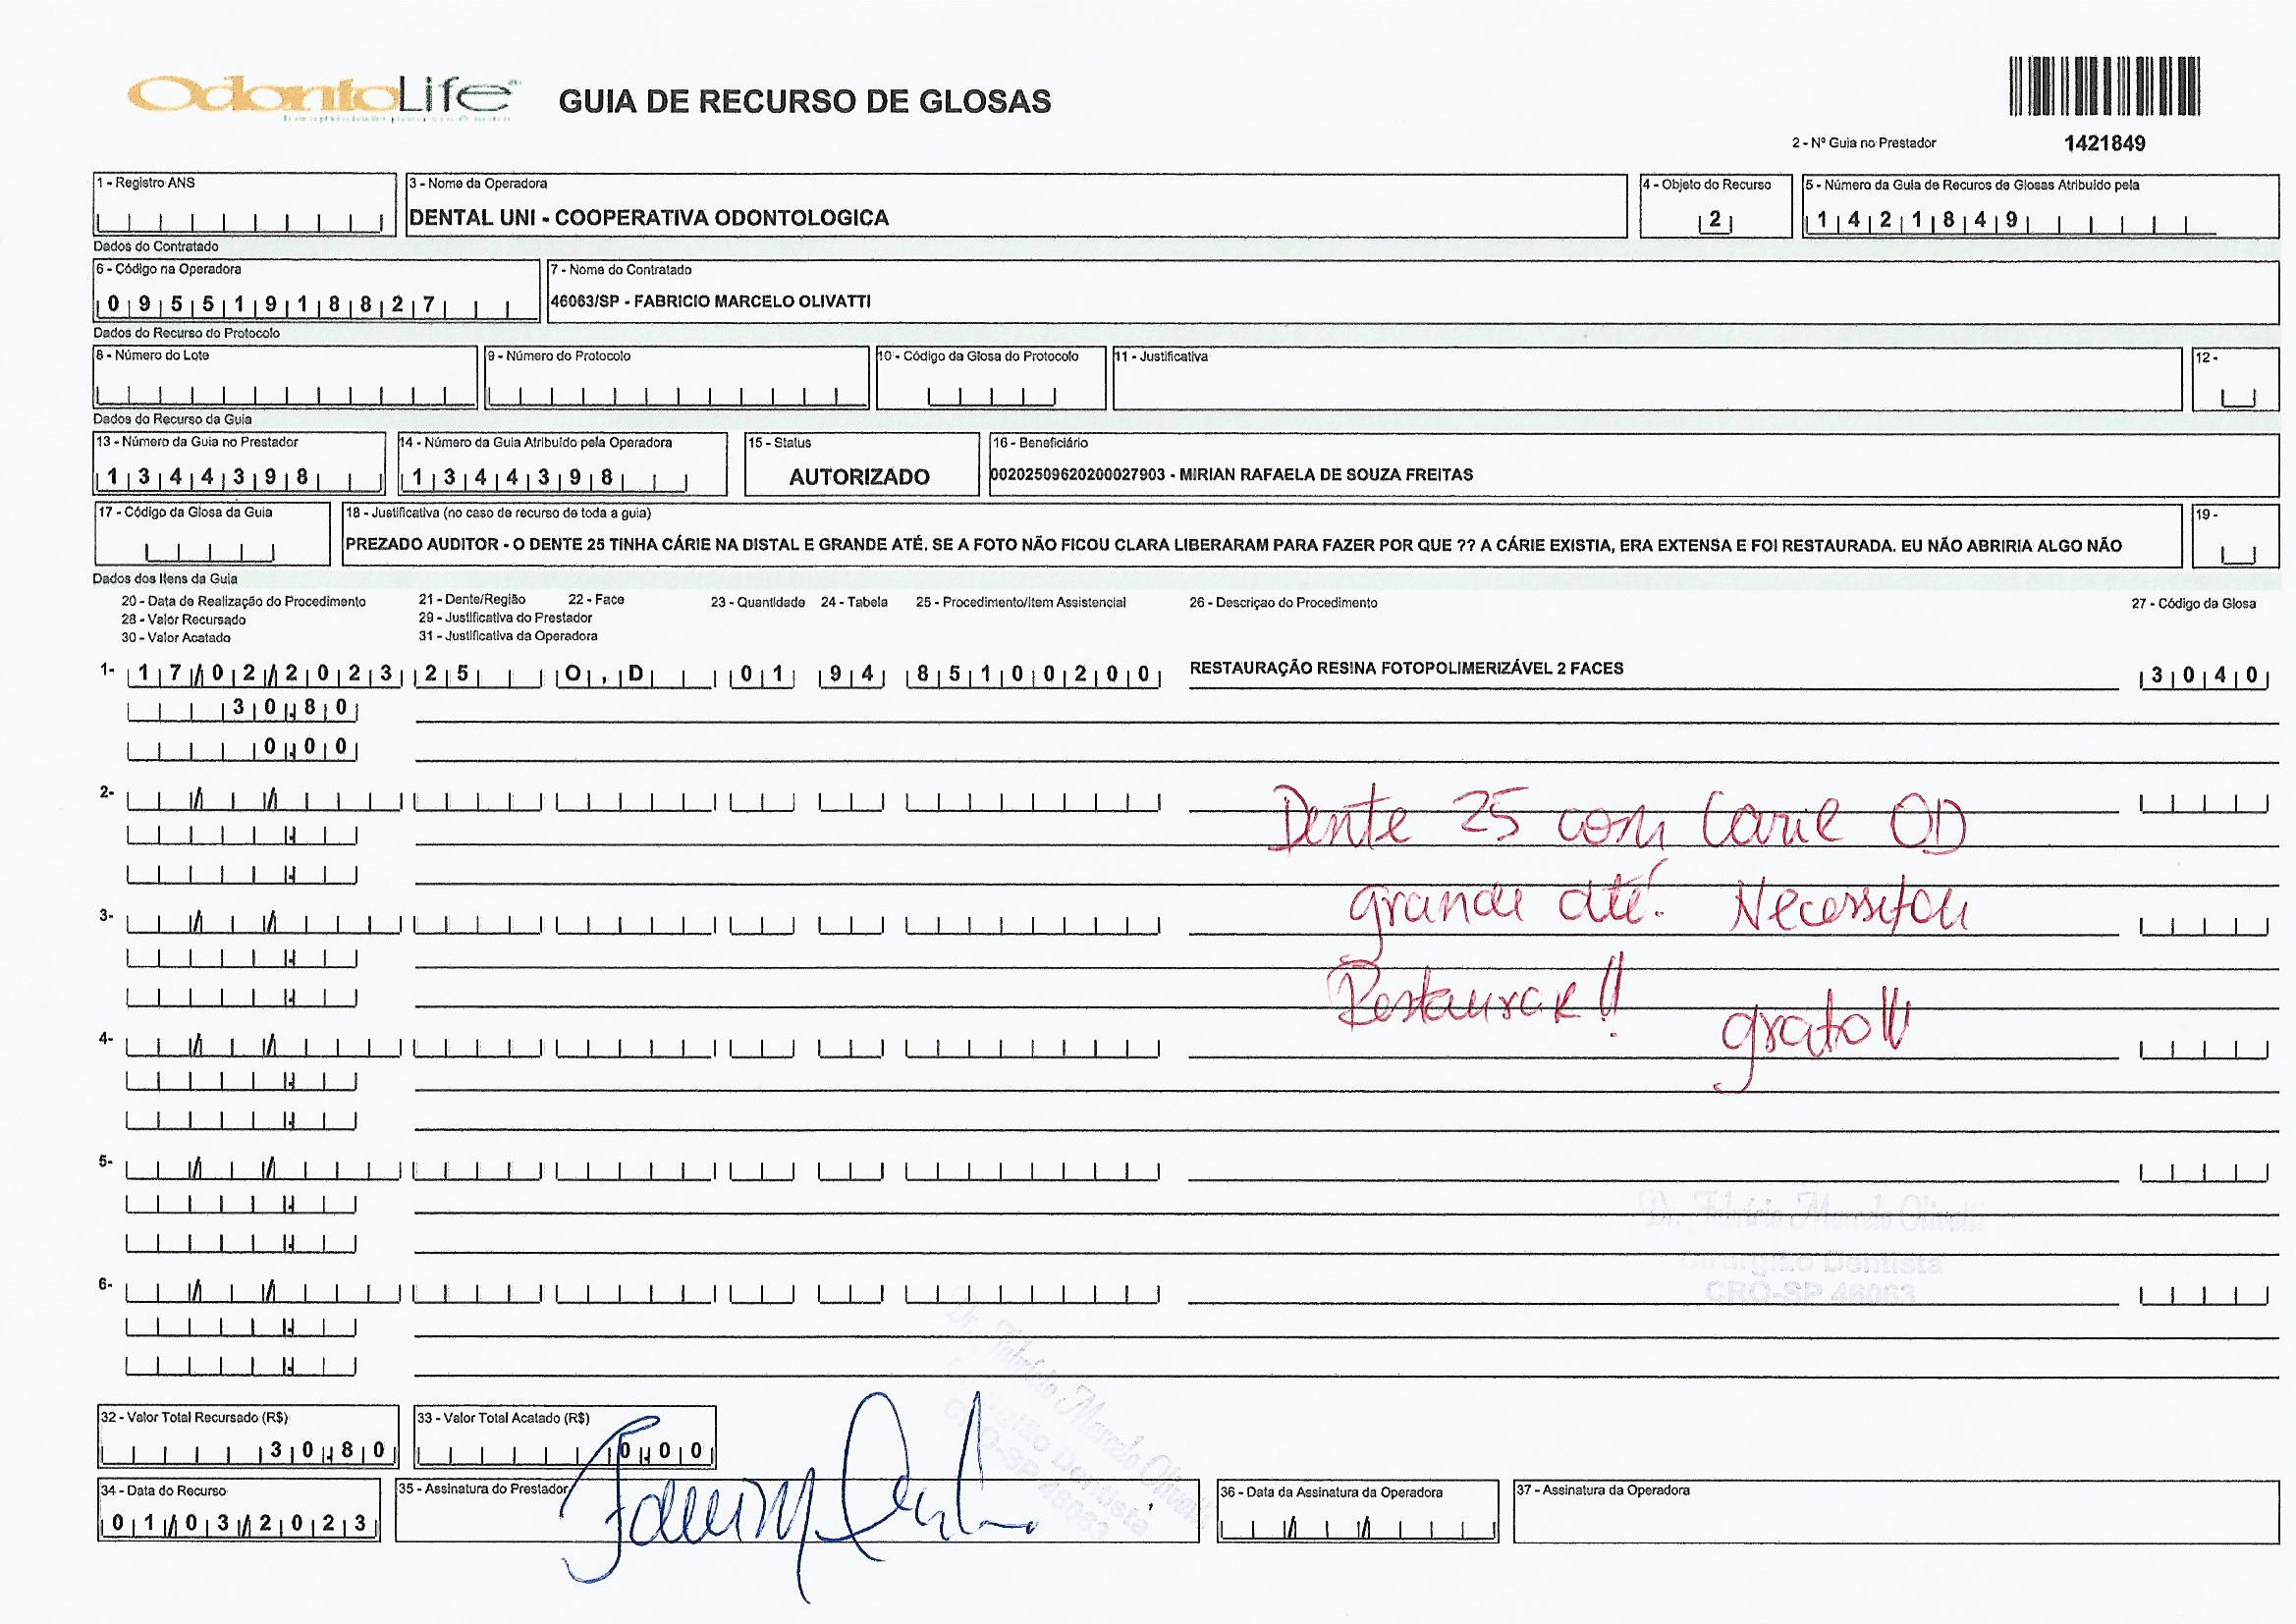 OdontoLife
GUIA DE RECURSO DE GLOSAS
2 - Nº Guia no Prestador
1421849
1 - Registro ANS
3 - Nome da Operadora
DENTAL UNI - COOPERATIVA ODONTOLOGICA
4 - Objeto do Recurso
2
5 - Número da Guia de Recuros de Glosas Atribuído pela
1421849
Dados do Contratado
6 - Código na Operadora
09551918827
7 - Nome do Contratado
46063/SP - FABRICIO MARCELO OLIVATTI
Dados do Recurso do Protocolo
8 - Número do Lote
9 - Número do Protocolo
10 - Código da Glosa do Protocolo
11 - Justificativa
12 -
Dados do Recurso da Guia
13 - Número da Guia no Prestador
1344398
14 - Número da Guia Atribuído pela Operadora
1344398
15 - Status
AUTORIZADO
16 - Beneficiário
00202509620200027903 - MIRIAN RAFAELA DE SOUZA FREITAS
17 - Código da Glosa da Guia
18 - Justificativa (no caso de recurso de toda a guia)
PREZADO AUDITOR - O DENTE 25 TINHA CÁRIE NA DISTAL E GRANDE ATÉ. SE A FOTO NÃO FICOU CLARA LIBERARAM PARA FAZER POR QUE ?? A CÁRIE EXISTIA, ERA EXTENSA E FOI RESTAURADA. EU NÃO ABRIRIA ALGO NÃO
19 -
Dados dos Itens da Guia
20 - Data de Realização do Procedimento 21 - Dente/Região 22 - Face 23 - Quantidade 24 - Tabela 25 - Procedimento/Item Assistencial 26 - Descriçao do Procedimento 27 - Código da Glosa
28 - Valor Recursado 29 - Justificativa do Prestador
30 - Valor Acatado 31 - Justificativa da Operadora
1- 17/02/2023 25 O,D 01 94 85100200 RESTAURAÇÃO RESINA FOTOPOLIMERIZÁVEL 2 FACES 3040
30.80
0.00
2-
Dente 25 com Carie OD
grande até! Necessitou
3-
Restaurar!!
grato!!!
4-
5-
Dr. Fabrício Marcelo Olivatti
Cirurgião Dentista
CRO-SP 46063
6-
Dr. Fabrício Marcelo Olivatti
Cirurgião Dentista
CRO-SP 46063
32 - Valor Total Recursado (R$)
30.80
33 - Valor Total Acatado (R$)
0.00
34 - Data do Recurso
01/03/2023
35 - Assinatura do Prestador
36 - Data da Assinatura da Operadora
37 - Assinatura da Operadora